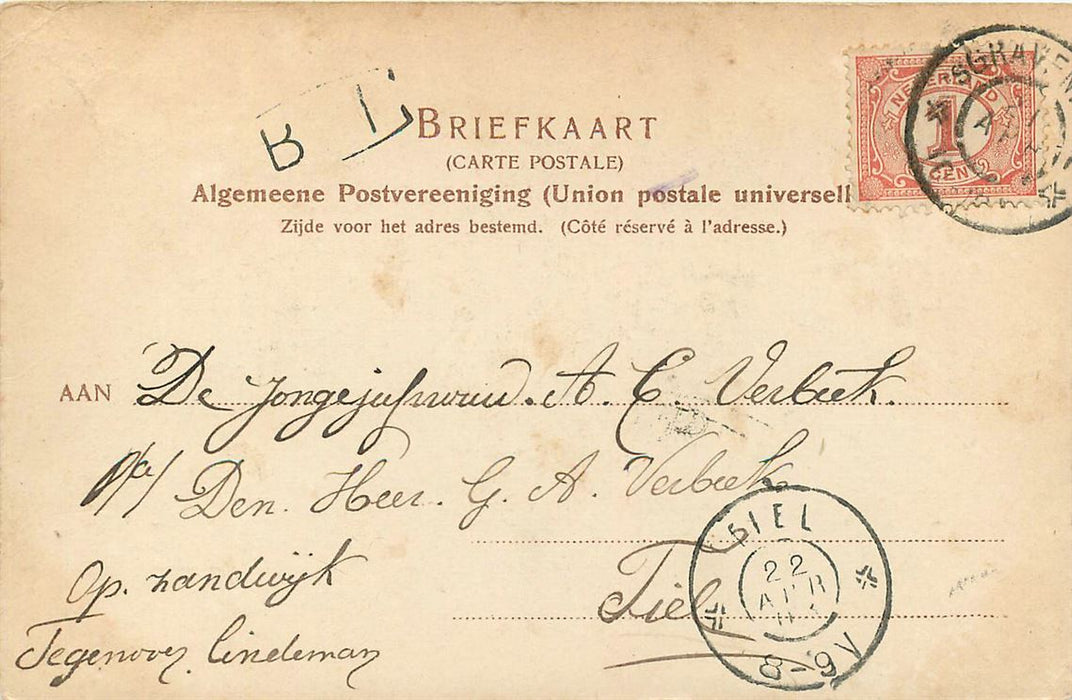 B
BRIEFKAART
(CARTE POSTALE)
Algemeene Postvereeniging (Union postale universell
Zijde voor het adres bestemd. (Côté réservé à l'adresse.)
NEDERLAND
1
CENT
'SGRAVEN
AAN De Jongejufvrouw. A. C. Verbeek.
p/a/ Den. Heer. G. A. Verbeek
Tiel
Op. zandwijk
Tegenover Lindeman
TIEL
22
APR
8-9V